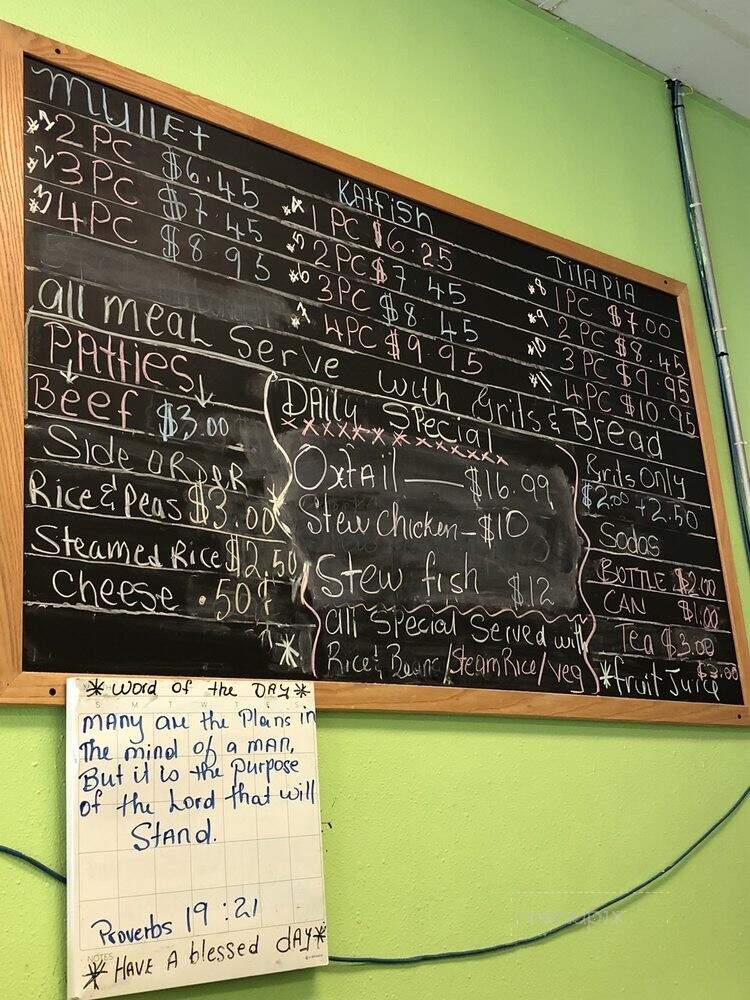 mullet
*1 2 PC $6.45
*2 3 PC $7.45
*3 4 PC $8.95
Katfish
*4 1 PC $6.25
*5 2 PC $7.45
*6 3 PC $8.45
*7 4 PC $9.95
TilAPIA
*8 1 PC $7.00
*9 2 PC $8.45
*10 3 PC $9.95
*11 4 PC $10.95
all meal Serve with Grits & Bread
PAtties
Beef $3.00
Side ORDER
Rice & Peas $3.00
Steamed Rice $2.50
Cheese .50¢
DAily Special
xxxxxxxxxxxxxx
OxtAil — $16.99
Stew chicken – $10
Stew fish $12
all Special Served with
Rice & Beans / Steam Rice / veg
Grits Only
$2.00 + 2.50
Sodas
BOTTLE $2.00
CAN $1.00
Tea $3.00
*fruit Juice $3.00
* Word of the DAY *
S M T W T F S
mANy are the Plans in
The mind of a mAN,
But it is the purpose
of the Lord that will
StANd.
Proverbs 19:21
NOTES
* HAVE A blessed dAY *